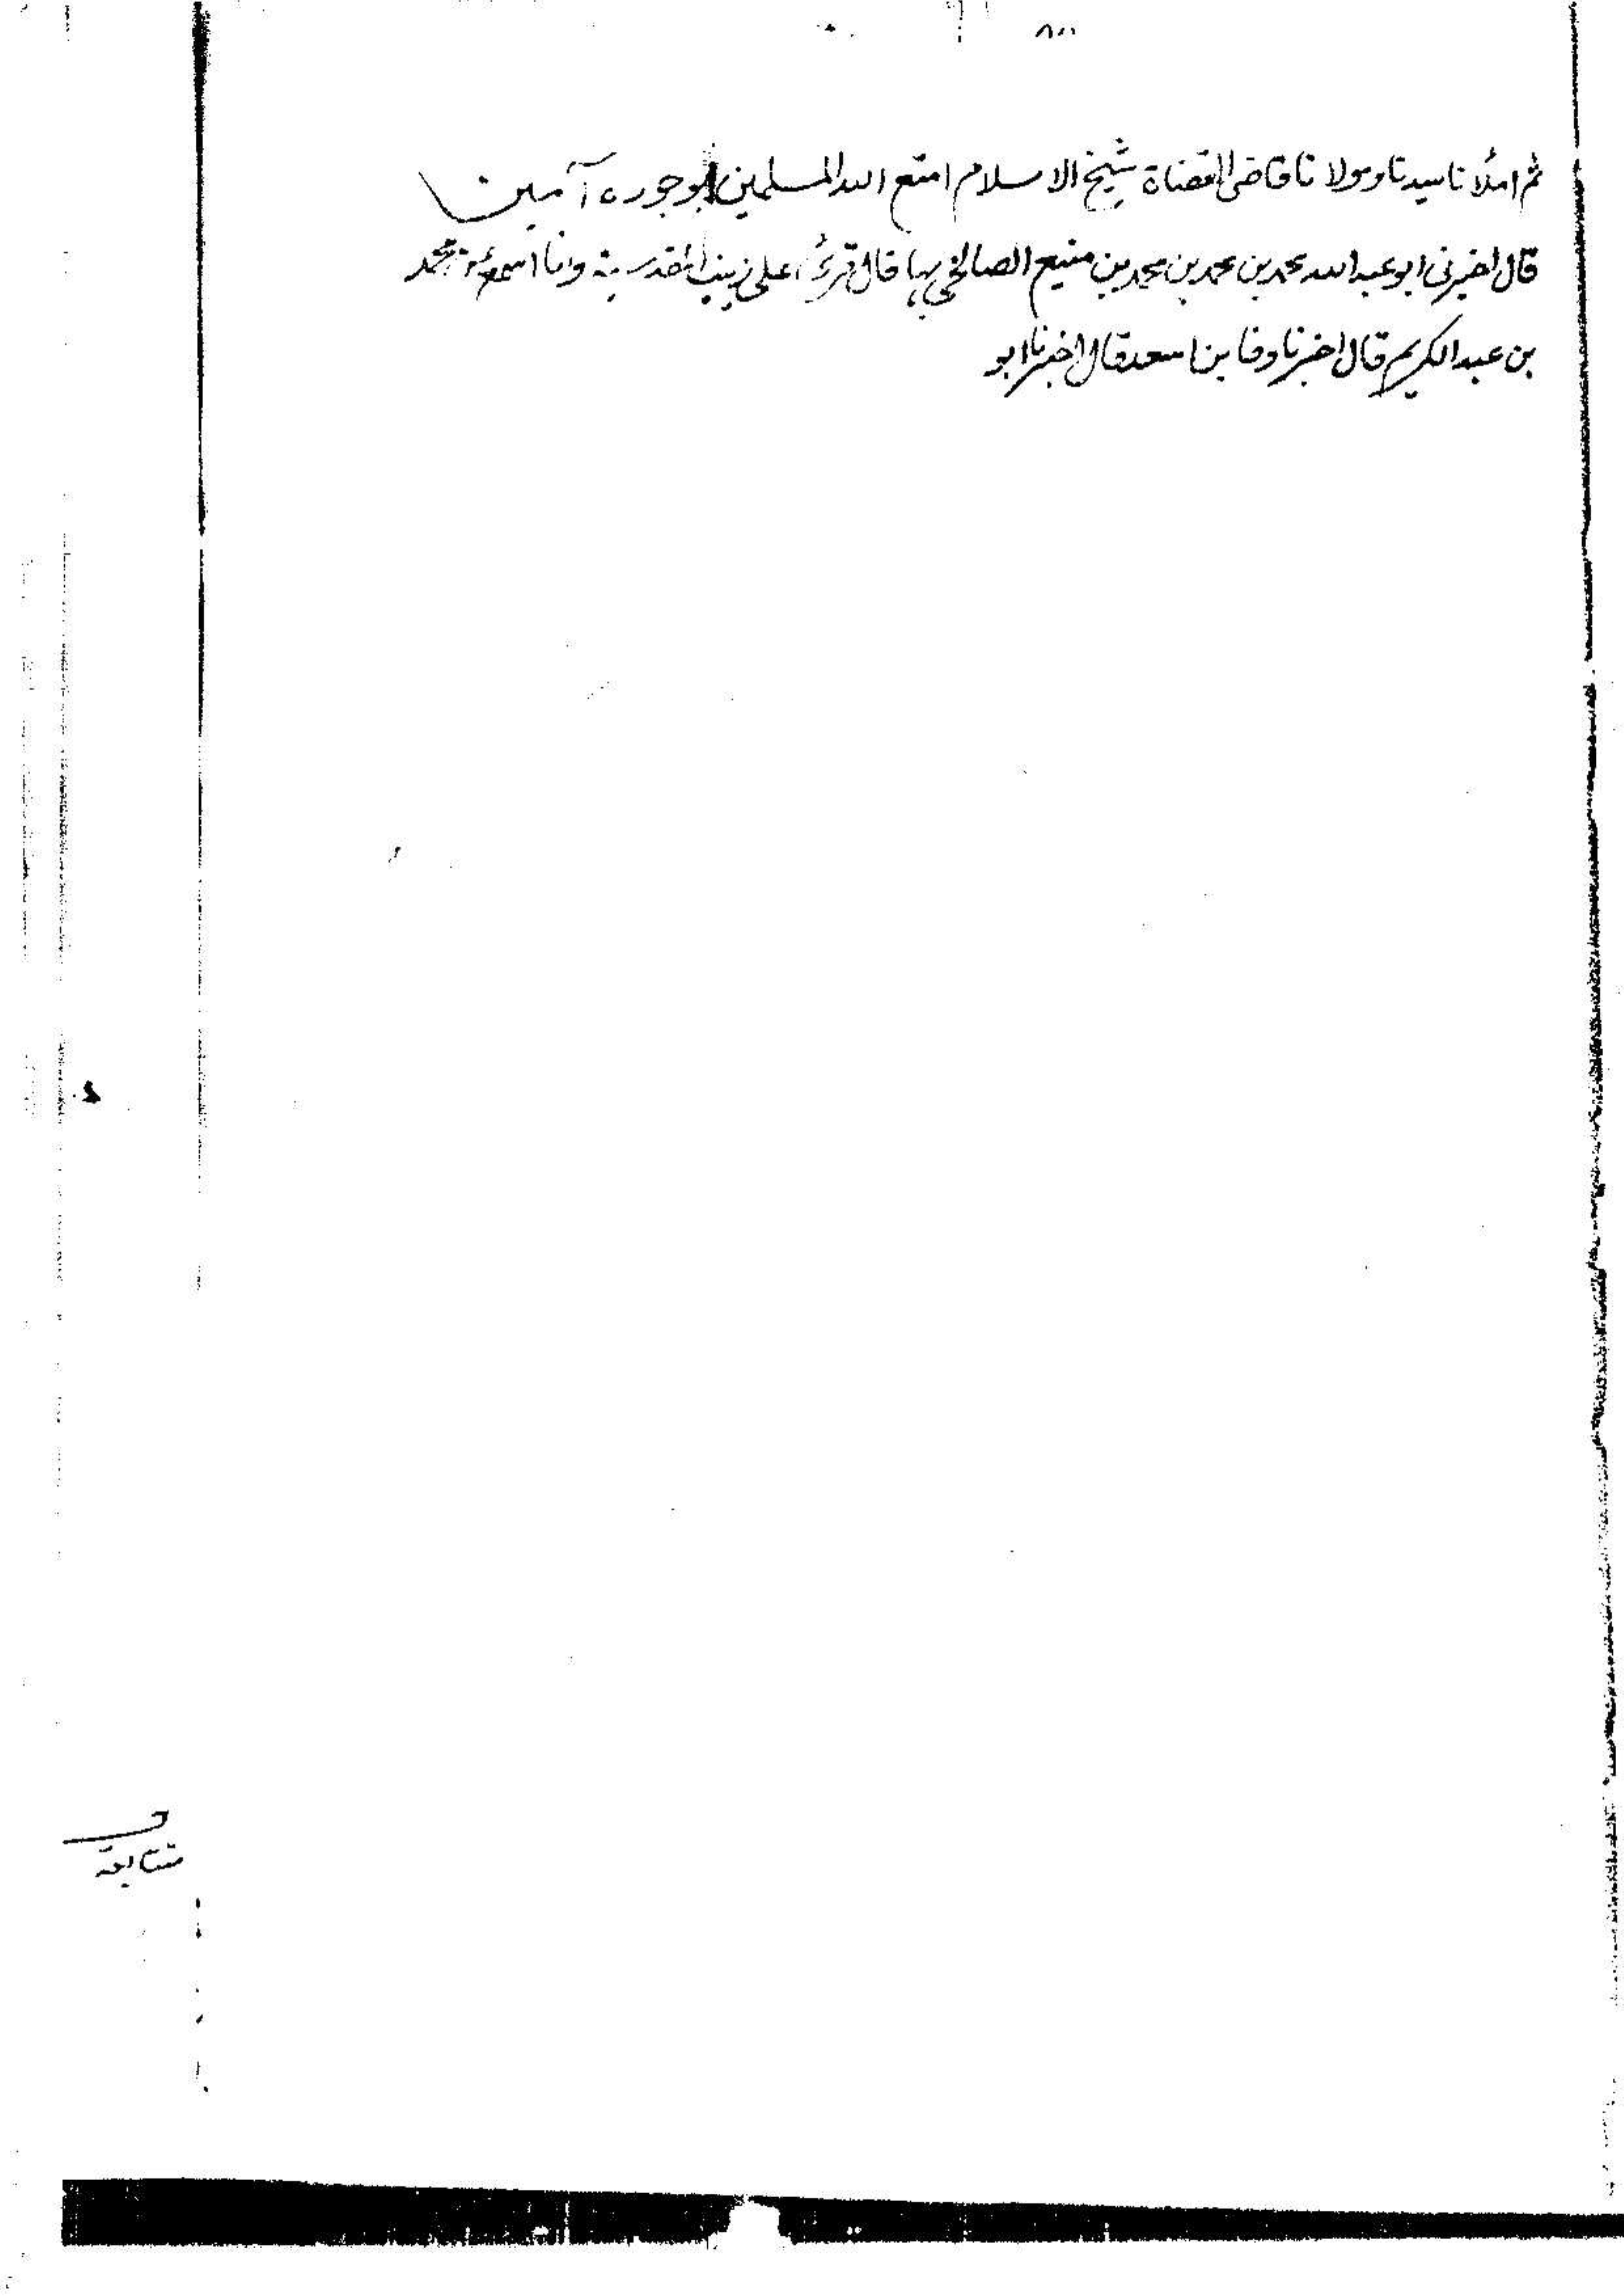 ثم املأنا سيدنا ومولانا قاضى القضاة شيخ الاسلام امتع الله المسلمين بوجوده آمين
قال اخبرنى ابو عبد الله محمد بن محمد بن محمد بن منيع الصالحى بها قال قرئ على زينب المقدسية وانا اسمع عن محمد
بن عبد الكريم قال اخبرنا وفا بن اسعد قال اخبرنا ابو